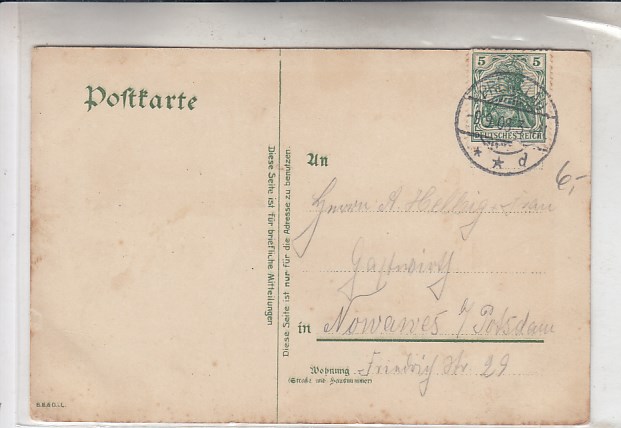 Postkarte
5 5
DEUTSCHES REICH
* * d
6,-
Diese Seite ist für briefliche Mitteilungen
Diese Seite ist nur für die Adresse zu benutzen.
An
Herrn A. Hellwig
Gastwirth
in Nowawes b/ Potsdam
Wohnung Friedrich Str. 29
(Straße und Hausnummer)